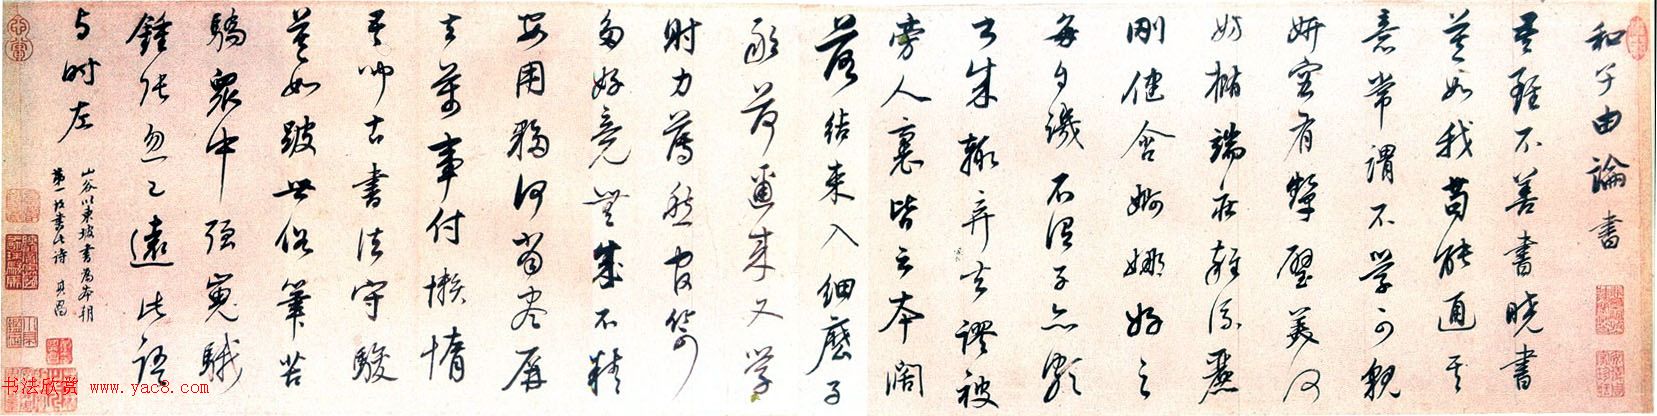 和子由論書
吾雖不善書曉書
莫如我苟能通其
意常謂不學可貌
妍容有顰璧美何
妨橢端莊雜流麗
剛健含婀娜好之
每自譏不謂子亦頗
書成輒棄去謬被
旁人裹皆云本闊
落結束入細麼子
敢荷邇來又學
射力薄愁官笴
多好竟無成不精
安用夥何當盡屏
去萬事付懶惰
吾聞古書法守駿
莫如跛世俗筆苦
驕眾中強嵬騀
鍾張忽已遠此語
与时左
山谷以東坡書為本朝
第一故書此詩 其昌
书法欣赏 www.yac8.com